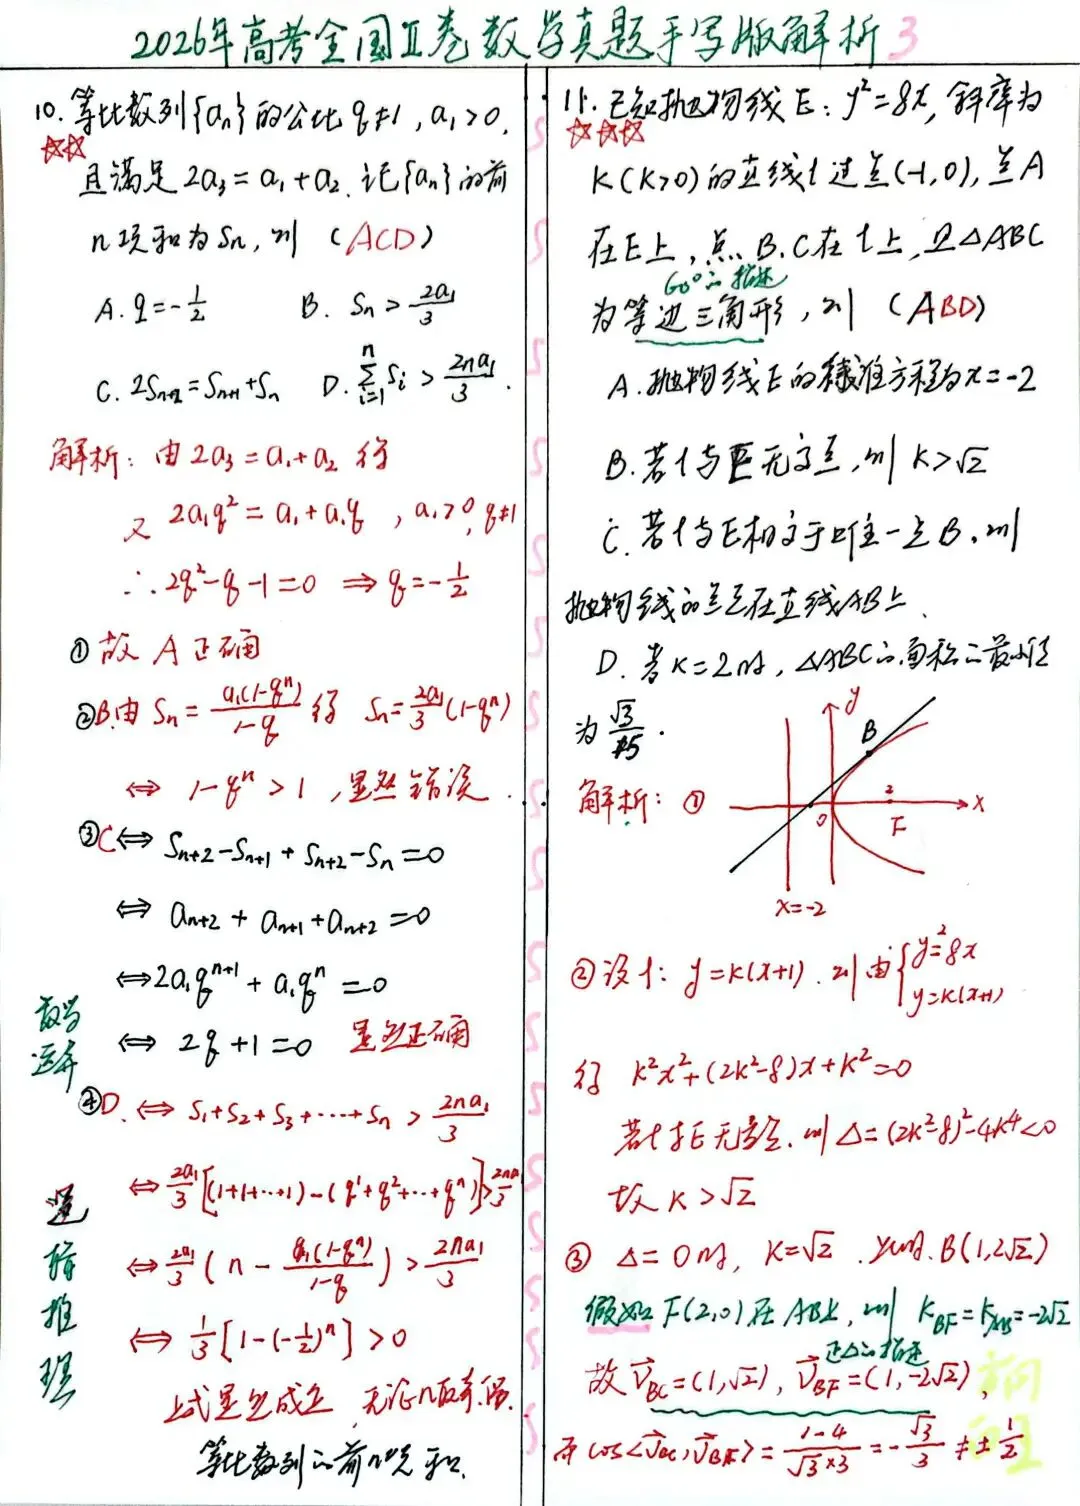 2026年高考全国II卷数学真题手写版解析 3
10. 等比数列{aₙ}的公比q≠1, a₁>0,
☆☆
且满足2a₃=a₁+a₂. 记{aₙ}的前
n项和为Sₙ, 则 (ACD)
A. q=-1/2 B. Sₙ>2a₁/3
C. 2Sₙ₊₂=Sₙ₊₁+Sₙ D. ∑ᵢ₌₁ⁿ Sᵢ > 2na₁/3.
解析: 由2a₃=a₁+a₂ 得
又 2a₁q²=a₁+a₁q, a₁>0, q≠1
∴ 2q²-q-1=0 ⇒ q=-1/2
① 故 A 正确
②B.由 Sₙ=a₁(1-qⁿ)/(1-q) 得 Sₙ=2a₁/3(1-qⁿ)
⇔ 1-qⁿ>1, 显然错误.
③C⇔ Sₙ₊₂-Sₙ₊₁+Sₙ₊₂-Sₙ=0
⇔ aₙ₊₂+aₙ₊₁+aₙ₊₂=0
⇔2a₁qⁿ⁺¹+a₁qⁿ=0
⇔ 2q+1=0 显然正确
数学
运算
④D.⇔ S₁+S₂+S₃+⋯+Sₙ > 2na₁/3
⇔ 2a₁/3[(1+1+⋯+1)-(q¹+q²+⋯+qⁿ)]>2na₁/3
⇔ 2a₁/3(n-q(1-qⁿ)/(1-q))>2na₁/3
⇔ 1/3[1-(-1/2)ⁿ]>0
上式显然成立, 无论n取奇.偶.
等比数列的前n项和.
逻
辑
推
理
11. 已知抛物线E: y²=8x, 斜率为
☆☆☆
K(K>0)的直线l过点(-1,0), 点A
在E上, 点B.C在l上, 且△ABC
60°的描述
为等边三角形, 则 (ABD)
A. 抛物线E的准线方程为x=-2
B. 若l与E无交点, 则 K>√2
C. 若l与E相交于唯一点B, 则
抛物线的焦点在直线AB上.
D. 若K=2时, △ABC的面积的最小值
为√3/15.
解析: ①
y
B
2
O
F
x
x=-2
②设l: y=K(x+1). 则由{y²=8x
y=K(x+1)
得 K²x²+(2K²-8)x+K²=0
若l与E无交点, 则△=(2K²-8)²-4K⁴<0
故 K>√2
③ △=0时, K=√2. 此时.B(1,2√2)
假如F(2,0)在AB上, 则 K_BF=K_AB=-2√2
正△的描述
故 V⃗_BC=(1,√2), V⃗_BF=(1,-2√2),
而cos<V⃗_BC,V⃗_BF>=(1-4)/(√3×3)=-√3/3≠±1/2